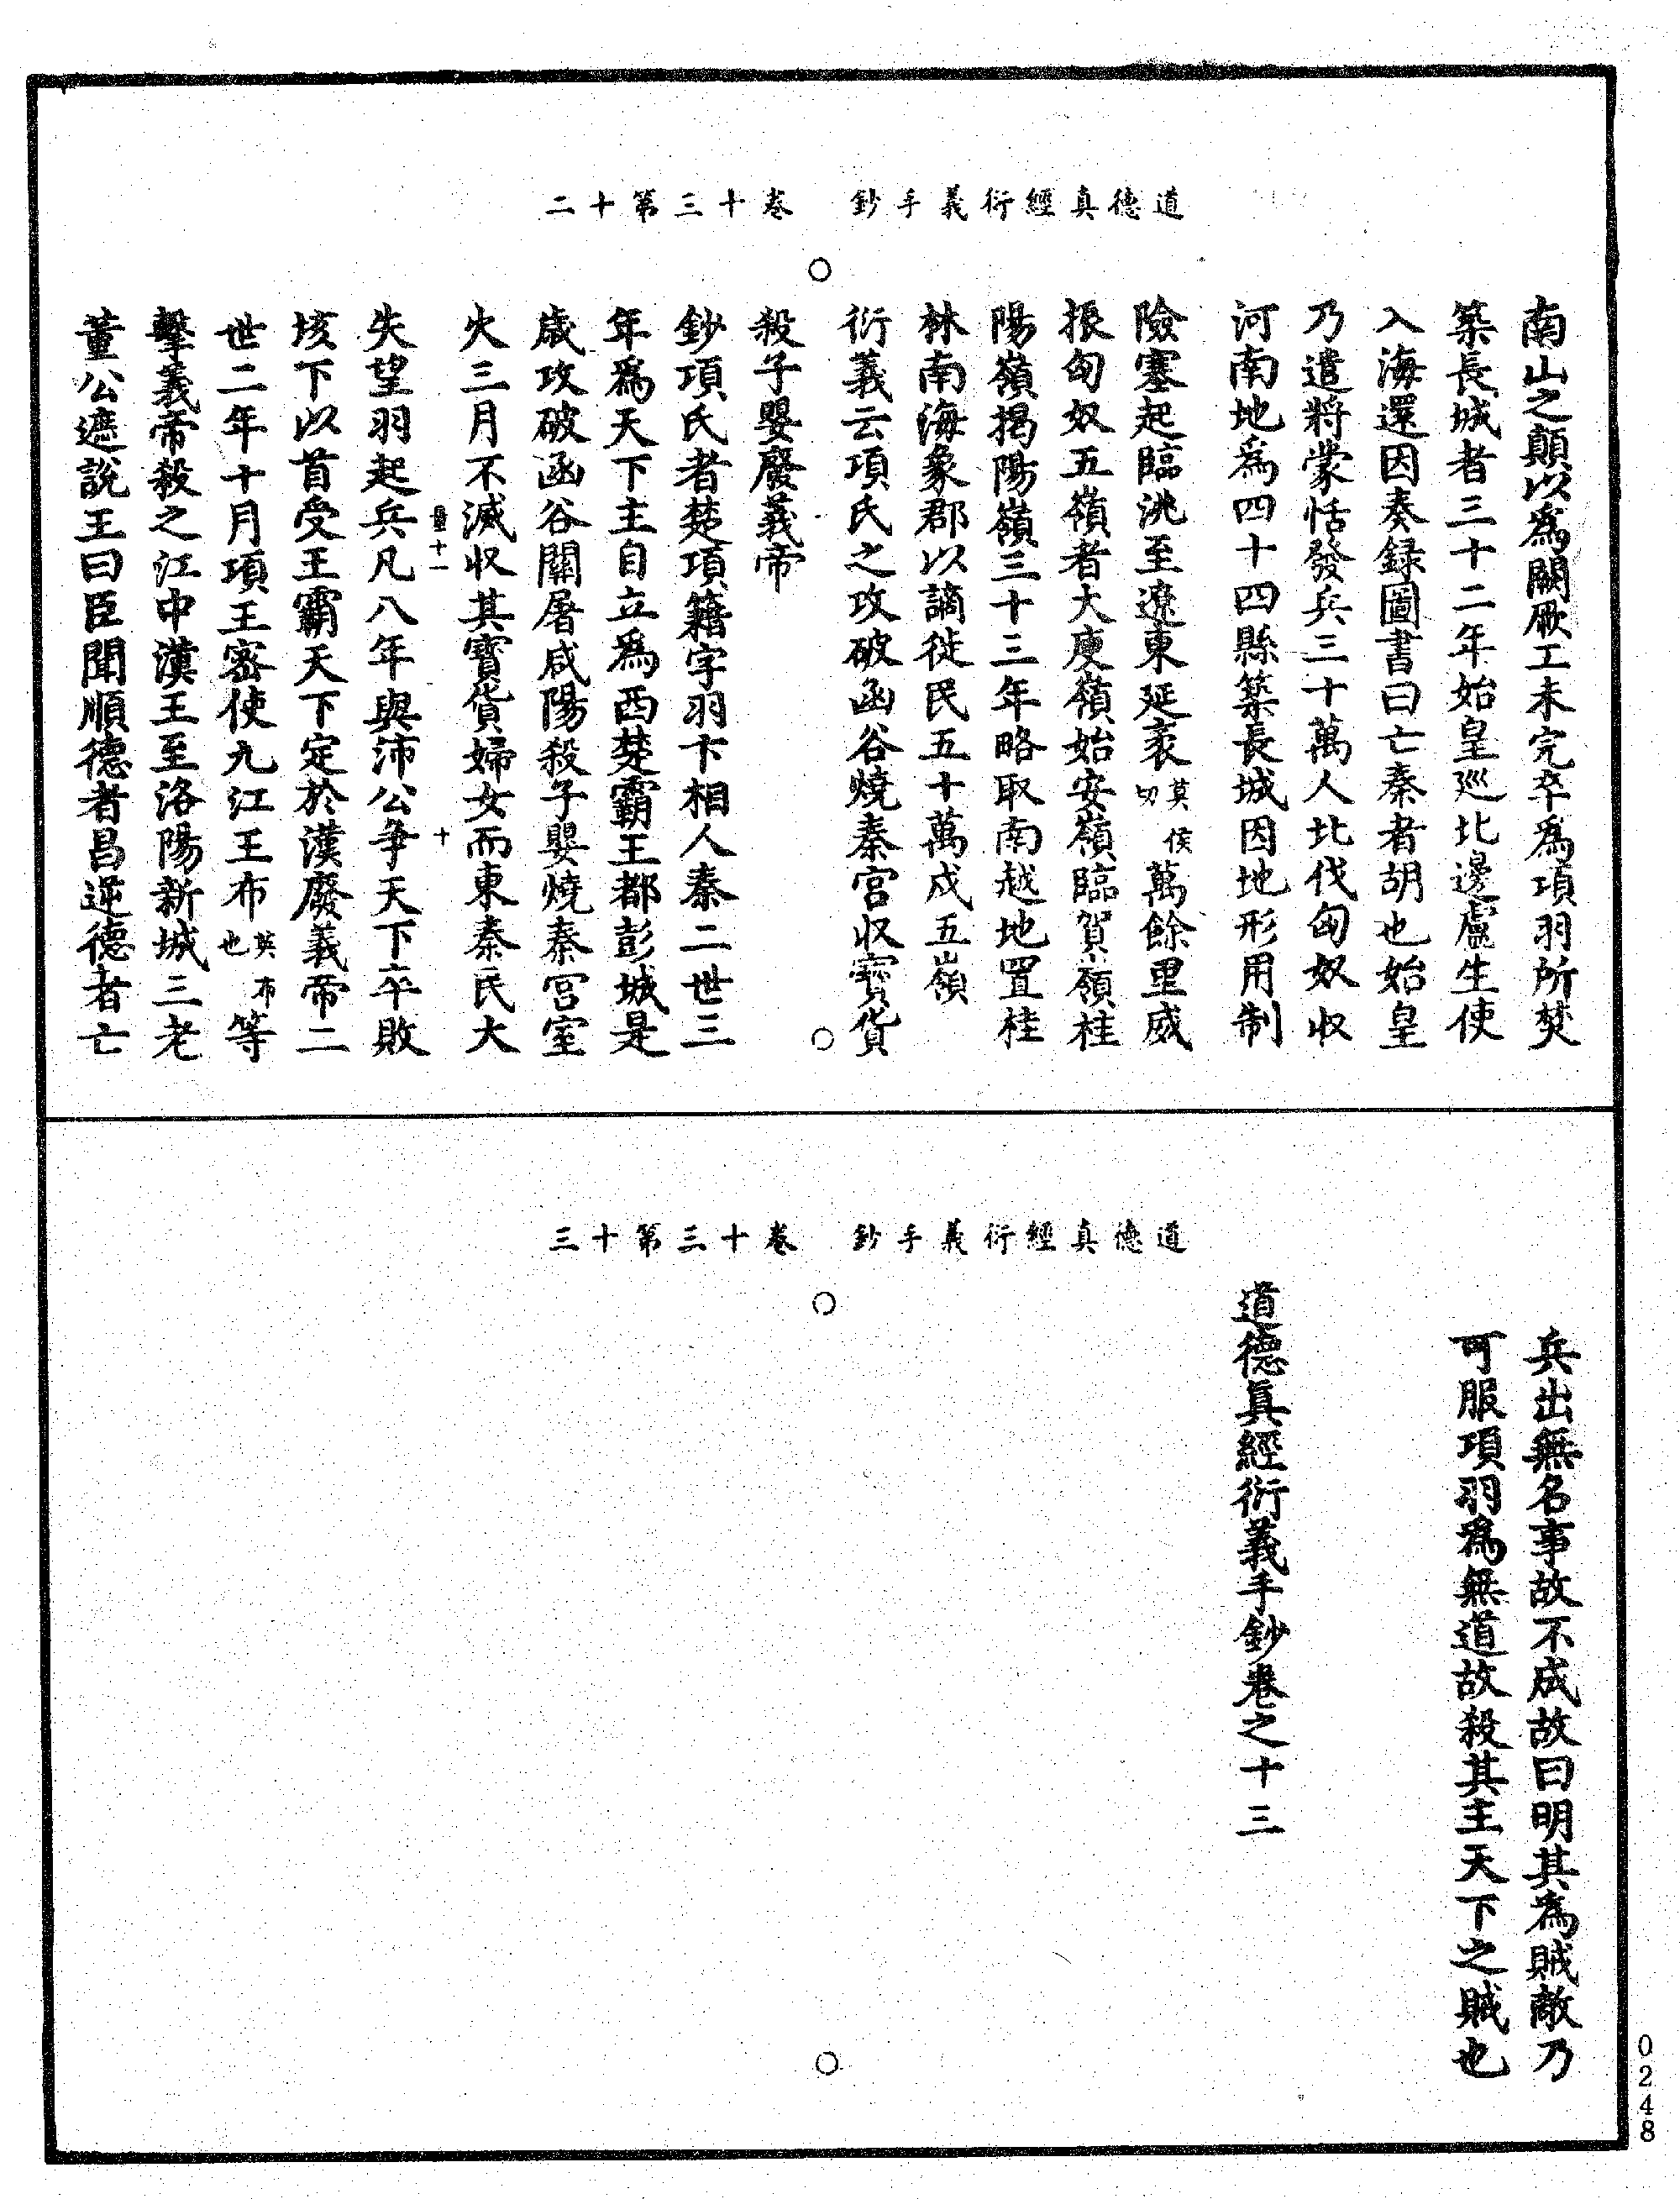 道德真經衍義手鈔　卷十三第十二
南山之顛以為闕厥工未完卒為項羽所焚
築長城者三十二年始皇巡北邊盧生使
入海還因奏録圖書曰亡秦者胡也始皇
乃遣將蒙恬發兵三十萬人北伐匈奴収
河南地為四十四縣築長城因地形用制
險塞起臨洮至遼東延袤莫侯切萬餘里威
振匈奴五嶺者大庾嶺始安嶺臨賀嶺桂
陽嶺揭陽嶺三十三年略取南越地置桂
林南海象郡以謫徙民五十萬戍五嶺
衍義云項氏之攻破函谷燒秦宮収寳貨
殺子嬰廢義帝
鈔項氏者楚項籍字羽卞相人秦二世三
年為天下主自立為西楚霸王都彭城是
歲攻破函谷關屠咸陽殺子嬰燒秦宮室
火三月不滅収其寳貨婦女而東秦民大
量十一
十
失望羽起兵凡八年與沛公争天下卒敗
垓下以首受王霸天下定於漢廢義帝二
世二年十月項王密使九江王布英布也等
擊義帝殺之江中漢王至洛陽新城三老
董公遮說王曰臣聞順德者昌逆德者亡
道德真經衍義手鈔　卷十三第十三
兵出無名事故不成故曰明其為賊敵乃
可服項羽為無道故殺其主天下之賊也
道德真經衍義手鈔卷之十三
0248